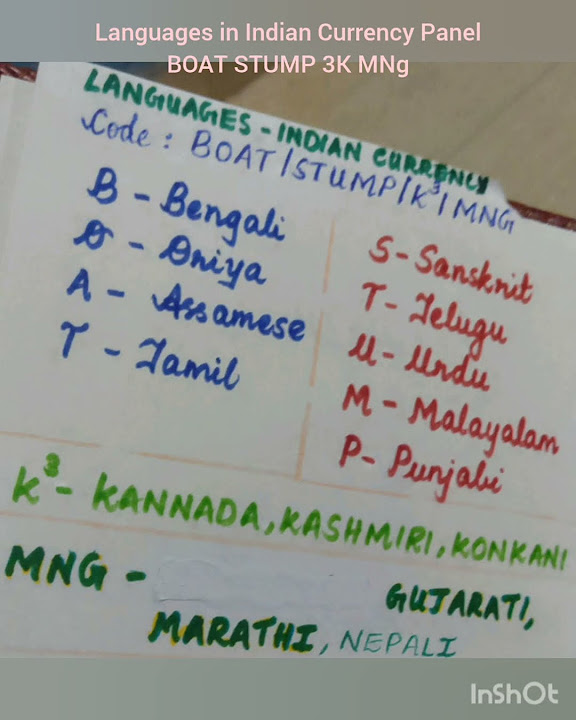 Languages in Indian Currency Panel
BOAT STUMP 3K MNg
LANGUAGES - INDIAN CURRENCY
Code : BOAT/STUMP/K³/MNG
B - Bengali
O - Oriya
A - Assamese
T - Tamil
S - Sanskrit
T - Telugu
U - Urdu
M - Malayalam
P - Punjabi
K³ - KANNADA, KASHMIRI, KONKANI
MNG - GUJARATI,
MARATHI, NEPALI
InShOt